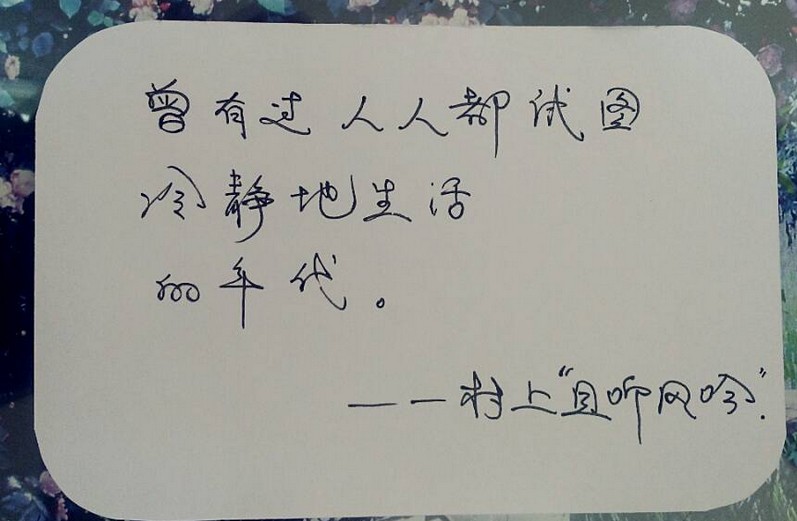 曾有过人人都试图
冷静地生活
的年代。
——村上"且听风吟".